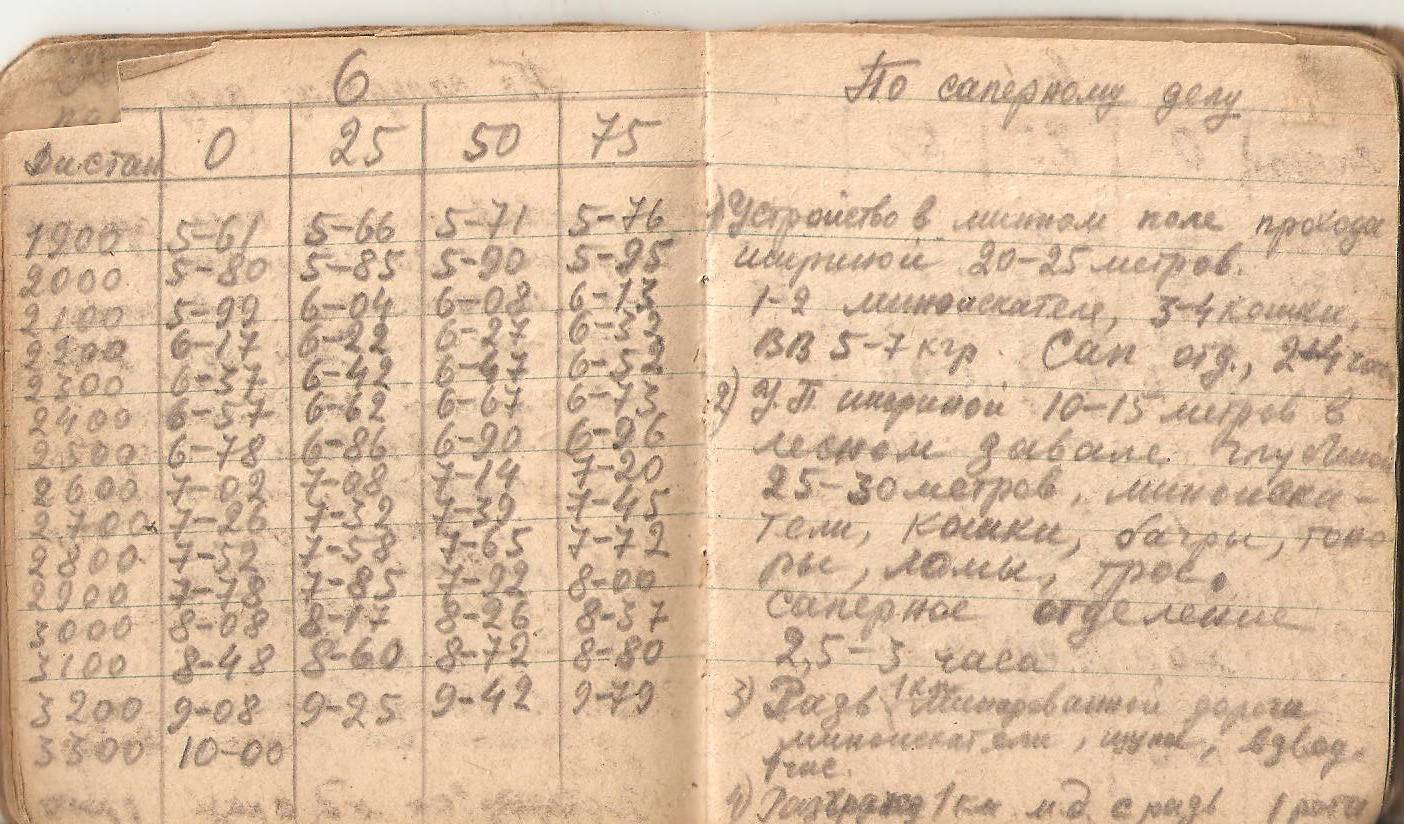 6
Дистан 0 25 50 75
1900 5-61 5-66 5-71 5-76
2000 5-80 5-85 5-90 5-95
2100 5-99 6-04 6-08 6-13
2200 6-17 6-22 6-27 6-32
2300 6-37 6-42 6-47 6-52
2400 6-57 6-62 6-67 6-73
2500 6-78 6-86 6-90 6-96
2600 7-02 7-08 7-14 7-20
2700 7-26 7-32 7-39 7-45
2800 7-52 7-58 7-65 7-72
2900 7-78 7-85 7-92 8-00
3000 8-08 8-17 8-26 8-37
3100 8-48 8-60 8-72 8-80
3200 9-08 9-25 9-42 9-79
3300 10-00
По саперному делу
1) Устройство в минном поле прохода
шириной 20-25 метров.
1-2 миноискателе, 3-4 кошки,
ВВ 5-7 кгр. Сап отд., час
2) У.П шириной 10-15 метров в
лесном завале глубиной
25-30 метров, миноиска-
тели, кошки, багры, топо
ры, ломы, трос.
саперное отделение
2,5-3 часа
3) Разв 1 км минированной дороги
миноискатели, щупы, взвод.
1 час.
4) 1 км м.д. с разв 1 рота